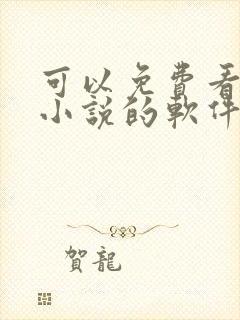 可以免費看
小說的軟件
賀龍